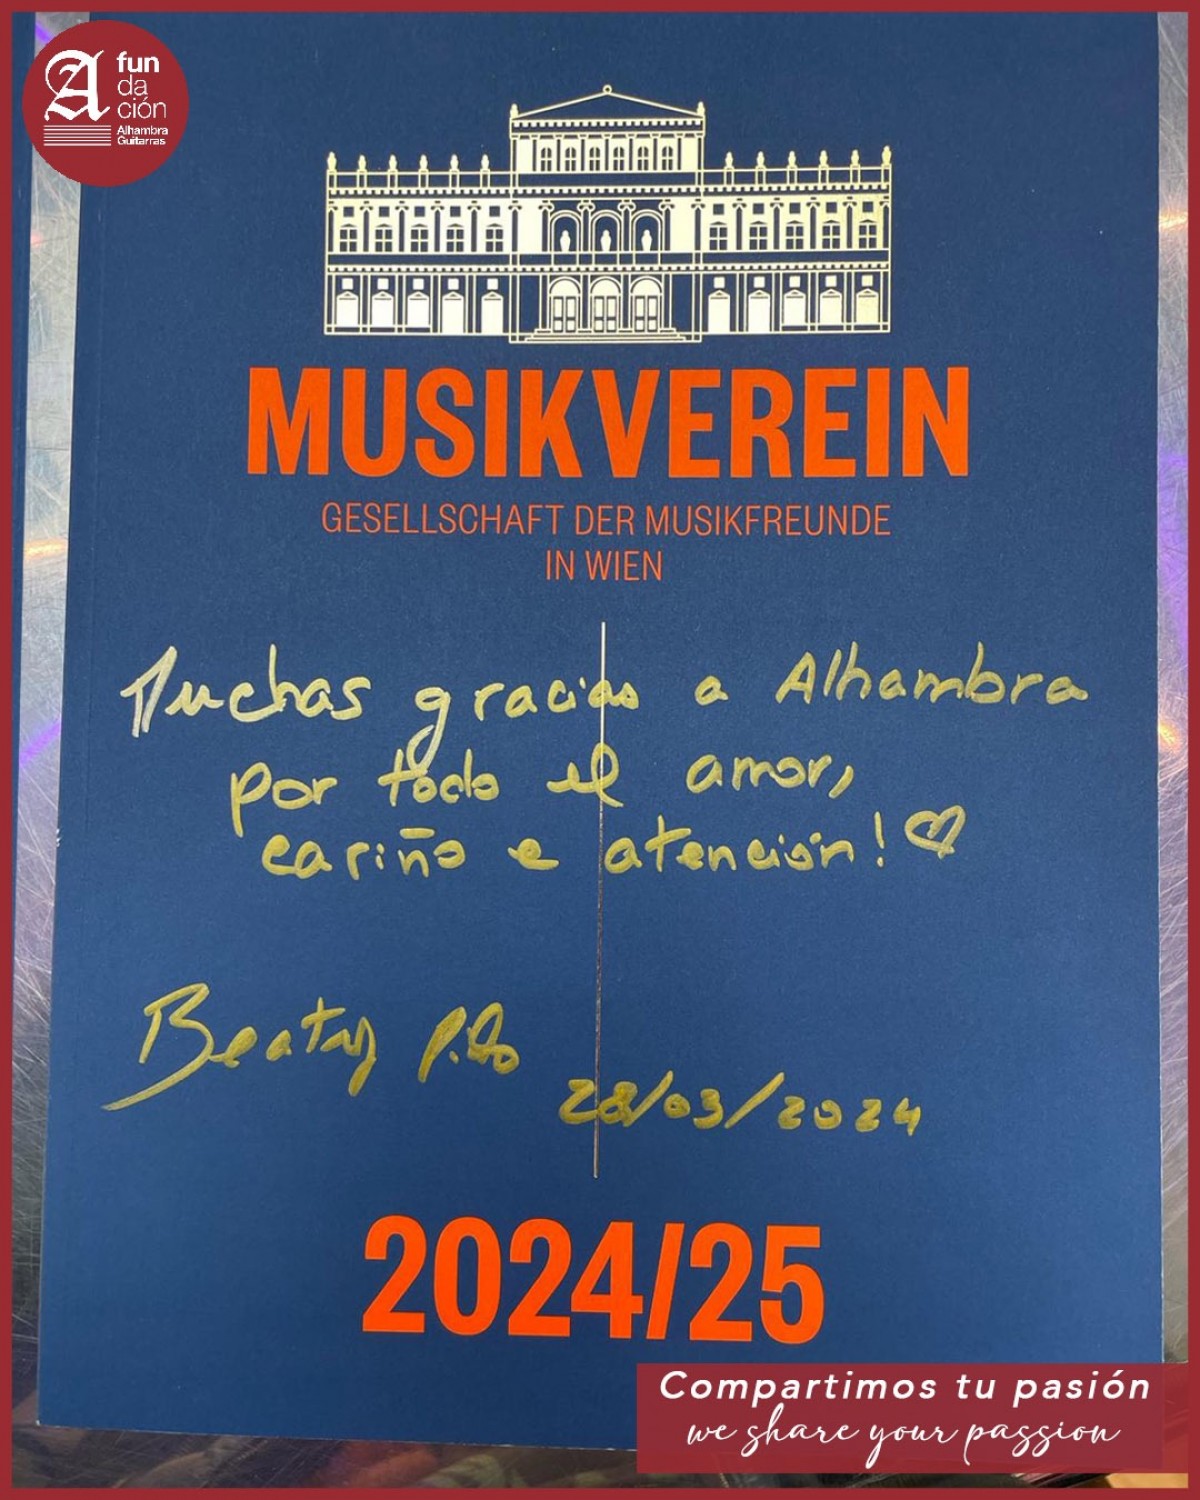 fun
da
ción
Alhambra
Guitarras
MUSIKVEREIN
GESELLSCHAFT DER MUSIKFREUNDE
IN WIEN
Muchas gracias a Alhambra
por todo el amor,
cariño e atención! ♡
Beatriz
28/03/2024
2024/25
Compartimos tu pasión
we share your passion